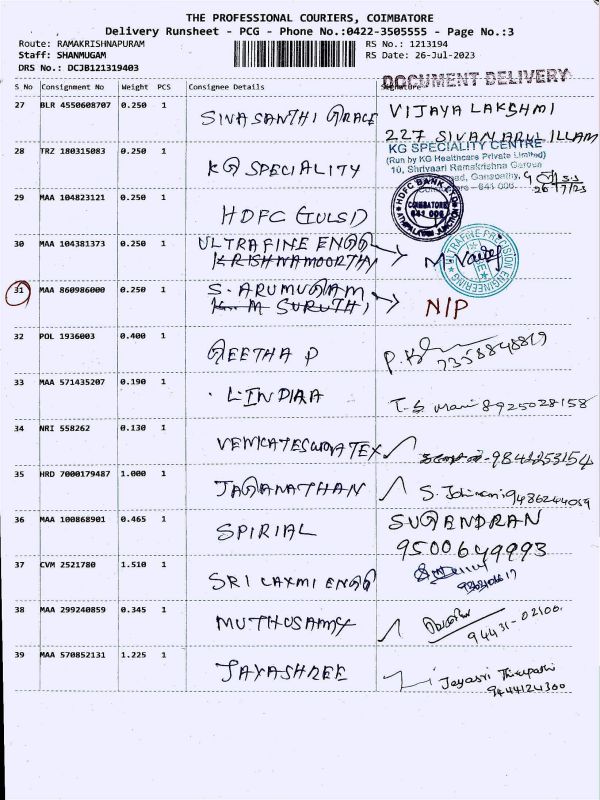 THE PROFESSIONAL COURIERS, COIMBATORE
Delivery Runsheet - PCG - Phone No.:0422-3505555 - Page No.:3
Route: RAMAKRISHNAPURAM
RS No.: 1213194
Staff: SHANMUGAM
RS Date: 26-Jul-2023
DRS No.: DCJB121319403
DOCUMENT DELIVERY
S No Consignment No Weight PCS Consignee Details Signature
27 BLR 4550608707 0.250 1 SIVASANTHI GRACE VIJAYA LAKSHMI
227 SIVAN ARUL ILLAM
28 TRZ 180315083 0.250 1 KG SPECIALITY
KG SPECIALITY CENTRE
(Run by KG Healthcare Private Limited)
10, Shrivaari Ramakrishna Garden
Road, Ganapathy,
641 006
26/7/23
29 MAA 104823121 0.250 1 HDFC
HDFC BANK LTD
COIMBATORE
641 006
30 MAA 104381373 0.250 1 ULTRAFINE ENGG
KRISHNAMOORTHY
ULTRAFINE PRECISION ENGINEERING
31 MAA 860986000 0.250 1 S. ARUMUGAM N/P
K. M SURUTHI
32 POL 1936003 0.400 1 GEETHA P
7358848819
33 MAA 571435207 0.190 1 L. INDIRA T.S mani 8925028158
34 NRI 558262 0.130 1 VENKATESWARA TEX 9841253154
35 HRD 7000179487 1.000 1 JAGANATHAN 9486244059
36 MAA 100868901 0.465 1 SPIRIAL SUGANDRAN
9500649993
37 CVM 2521780 1.510 1 SRI LAXMI ENGG
38 MAA 299240859 0.345 1 MUTHUSAMY
94431-02100
39 MAA 570852131 1.225 1 JAYASHREE Jayasri Thirupathi
9444124300